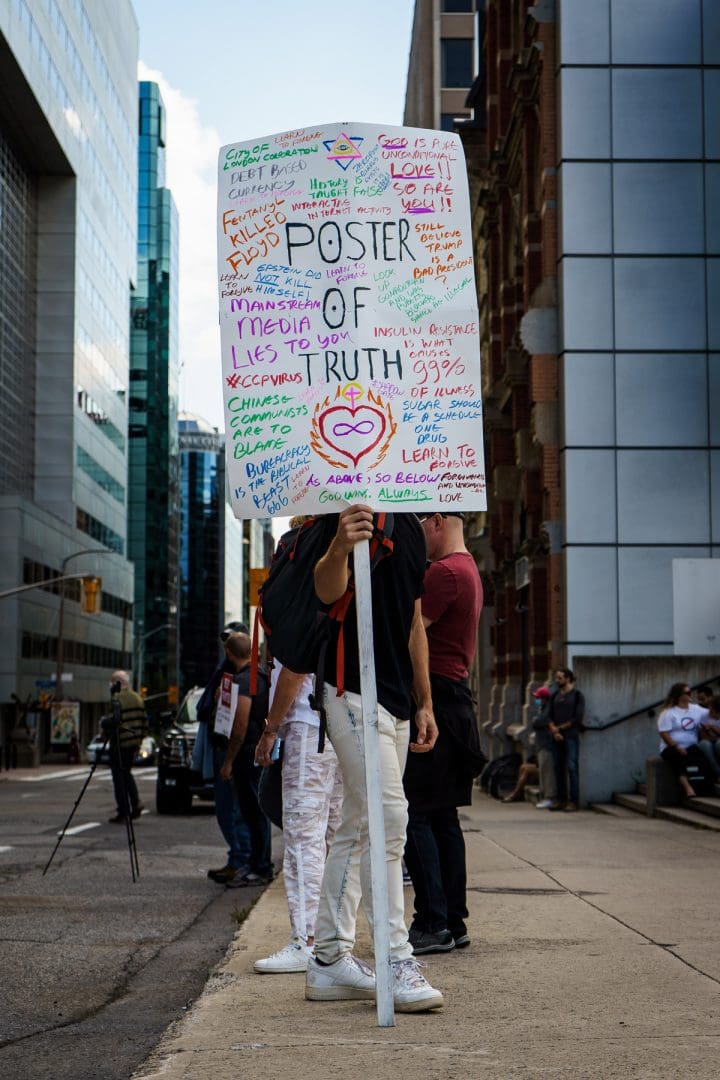 LEARN
TO FORGIVE
CITY OF
LONDON CORPORATION
DEBT BASED
CURRENCY
HISTORY IS
TAUGHT FALSE
INTERACTING
INTERNET ACTIVITY
GOD IS PURE
UNCONDITIONAL
LOVE!!
SO ARE
YOU!!
FENTANYL
KILLED
FLOYD
POSTER
OF
TRUTH
STILL
BELIEVE
TRUMP
IS A
BAD PRESIDENT
?
LEARN
TO
FORGIVE
EPSTEIN DID
NOT KILL
HIMSELF!
LEARN TO
FORGIVE
LOOK
UP
MAINSTREAM
MEDIA
LIES TO YOU
#CCPVIRUS
CHINESE
COMMUNISTS
ARE TO
BLAME
INSULIN RESISTANCE
IS WHAT
CAUSES
99%
OF ILLNESS
SUGAR SHOULD
BE A SCHEDULE
ONE
DRUG
LEARN TO
FORGIVE
BUREAUCRACY
IS THE BIBLICAL
BEAST
666
AS ABOVE, SO BELOW
GOD WINS. ALWAYS
LOVE